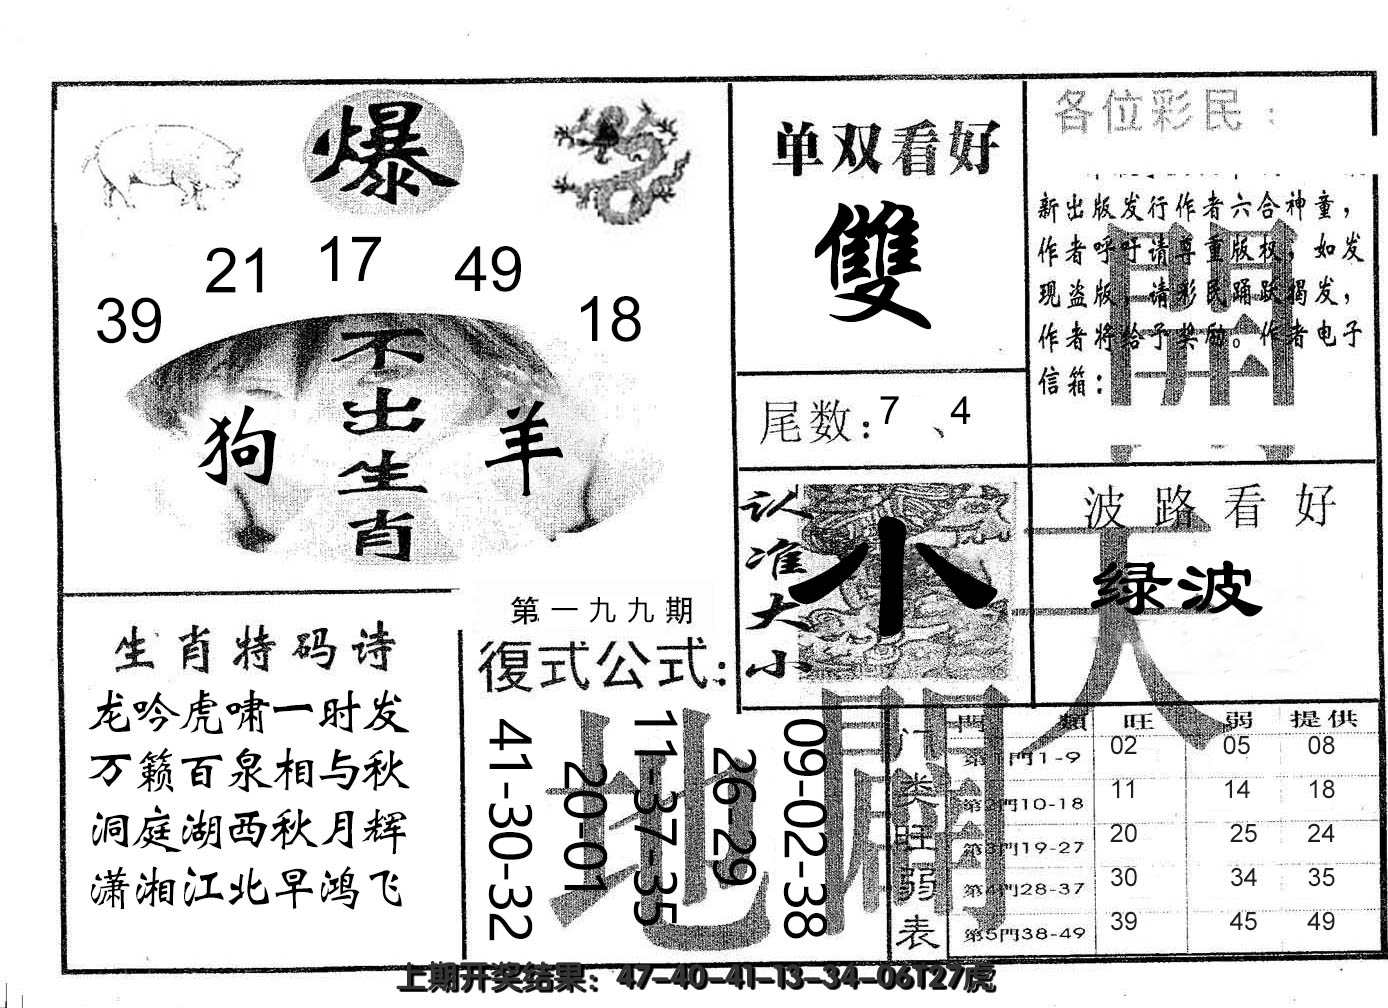 爆
39 21 17 49 18
不出生肖
狗 羊
单双看好
雙
尾数：7、4
认准大小
小
各位彩民：
新出版发行作者六合神童，
作者呼吁请尊重版权，如发
现盗版，请彩民踊跃揭发，
作者将给予奖励。作者电子
信箱：
波路看好
绿波
天
開
地
闢
生肖特码诗
龙吟虎啸一时发
万籁百泉相与秋
洞庭湖西秋月辉
潇湘江北早鸿飞
第一九九期
復式公式：
41-30-32
20-01
11-37-35
26-29
09-02-38
门类旺弱表
門 類 旺 弱 提供
第1門1-9 02 05 08
第2門10-18 11 14 18
第3門19-27 20 25 24
第4門28-37 30 34 35
第5門38-49 39 45 49
上期开奖结果：47-40-41-13-34-06T27虎